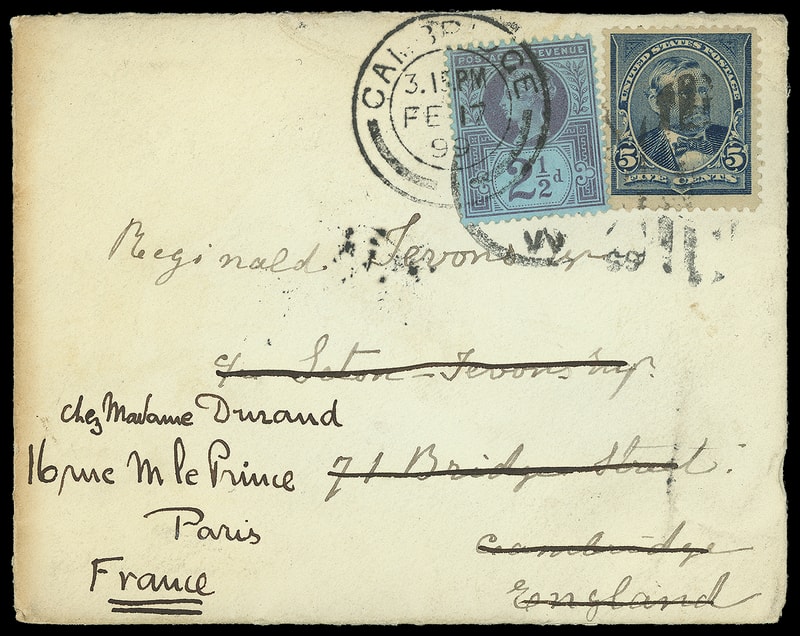 CAMBRIDGE
3.15 PM
FE 17
99
POSTAGE REVENUE
2½d
UNITED STATES POSTAGE
5 5
FIVE CENTS
Reginald Jevons
c/o Seton-Jevons Esq.
chez Madame Durand
16 rue M le Prince
71 Bridge Street.
Paris
Cambridge
France
England